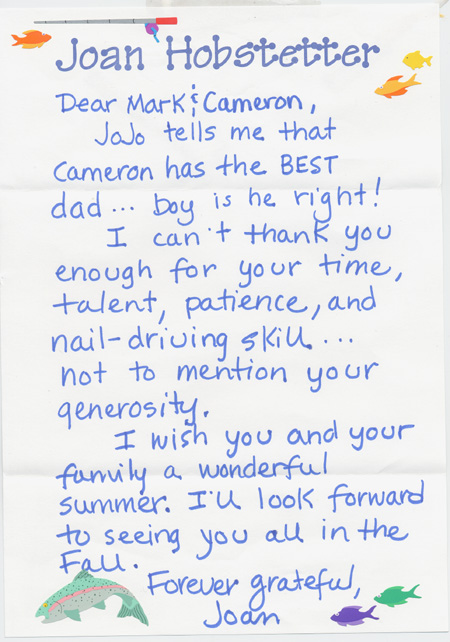 Joan Hobstetter
Dear Mark & Cameron,
JoJo tells me that
Cameron has the BEST
dad... boy is he right!
I can't thank you
enough for your time,
talent, patience, and
nail-driving skill...
not to mention your
generosity.
I wish you and your
family a wonderful
summer. I'll look forward
to seeing you all in the
Fall.
Forever grateful,
Joan